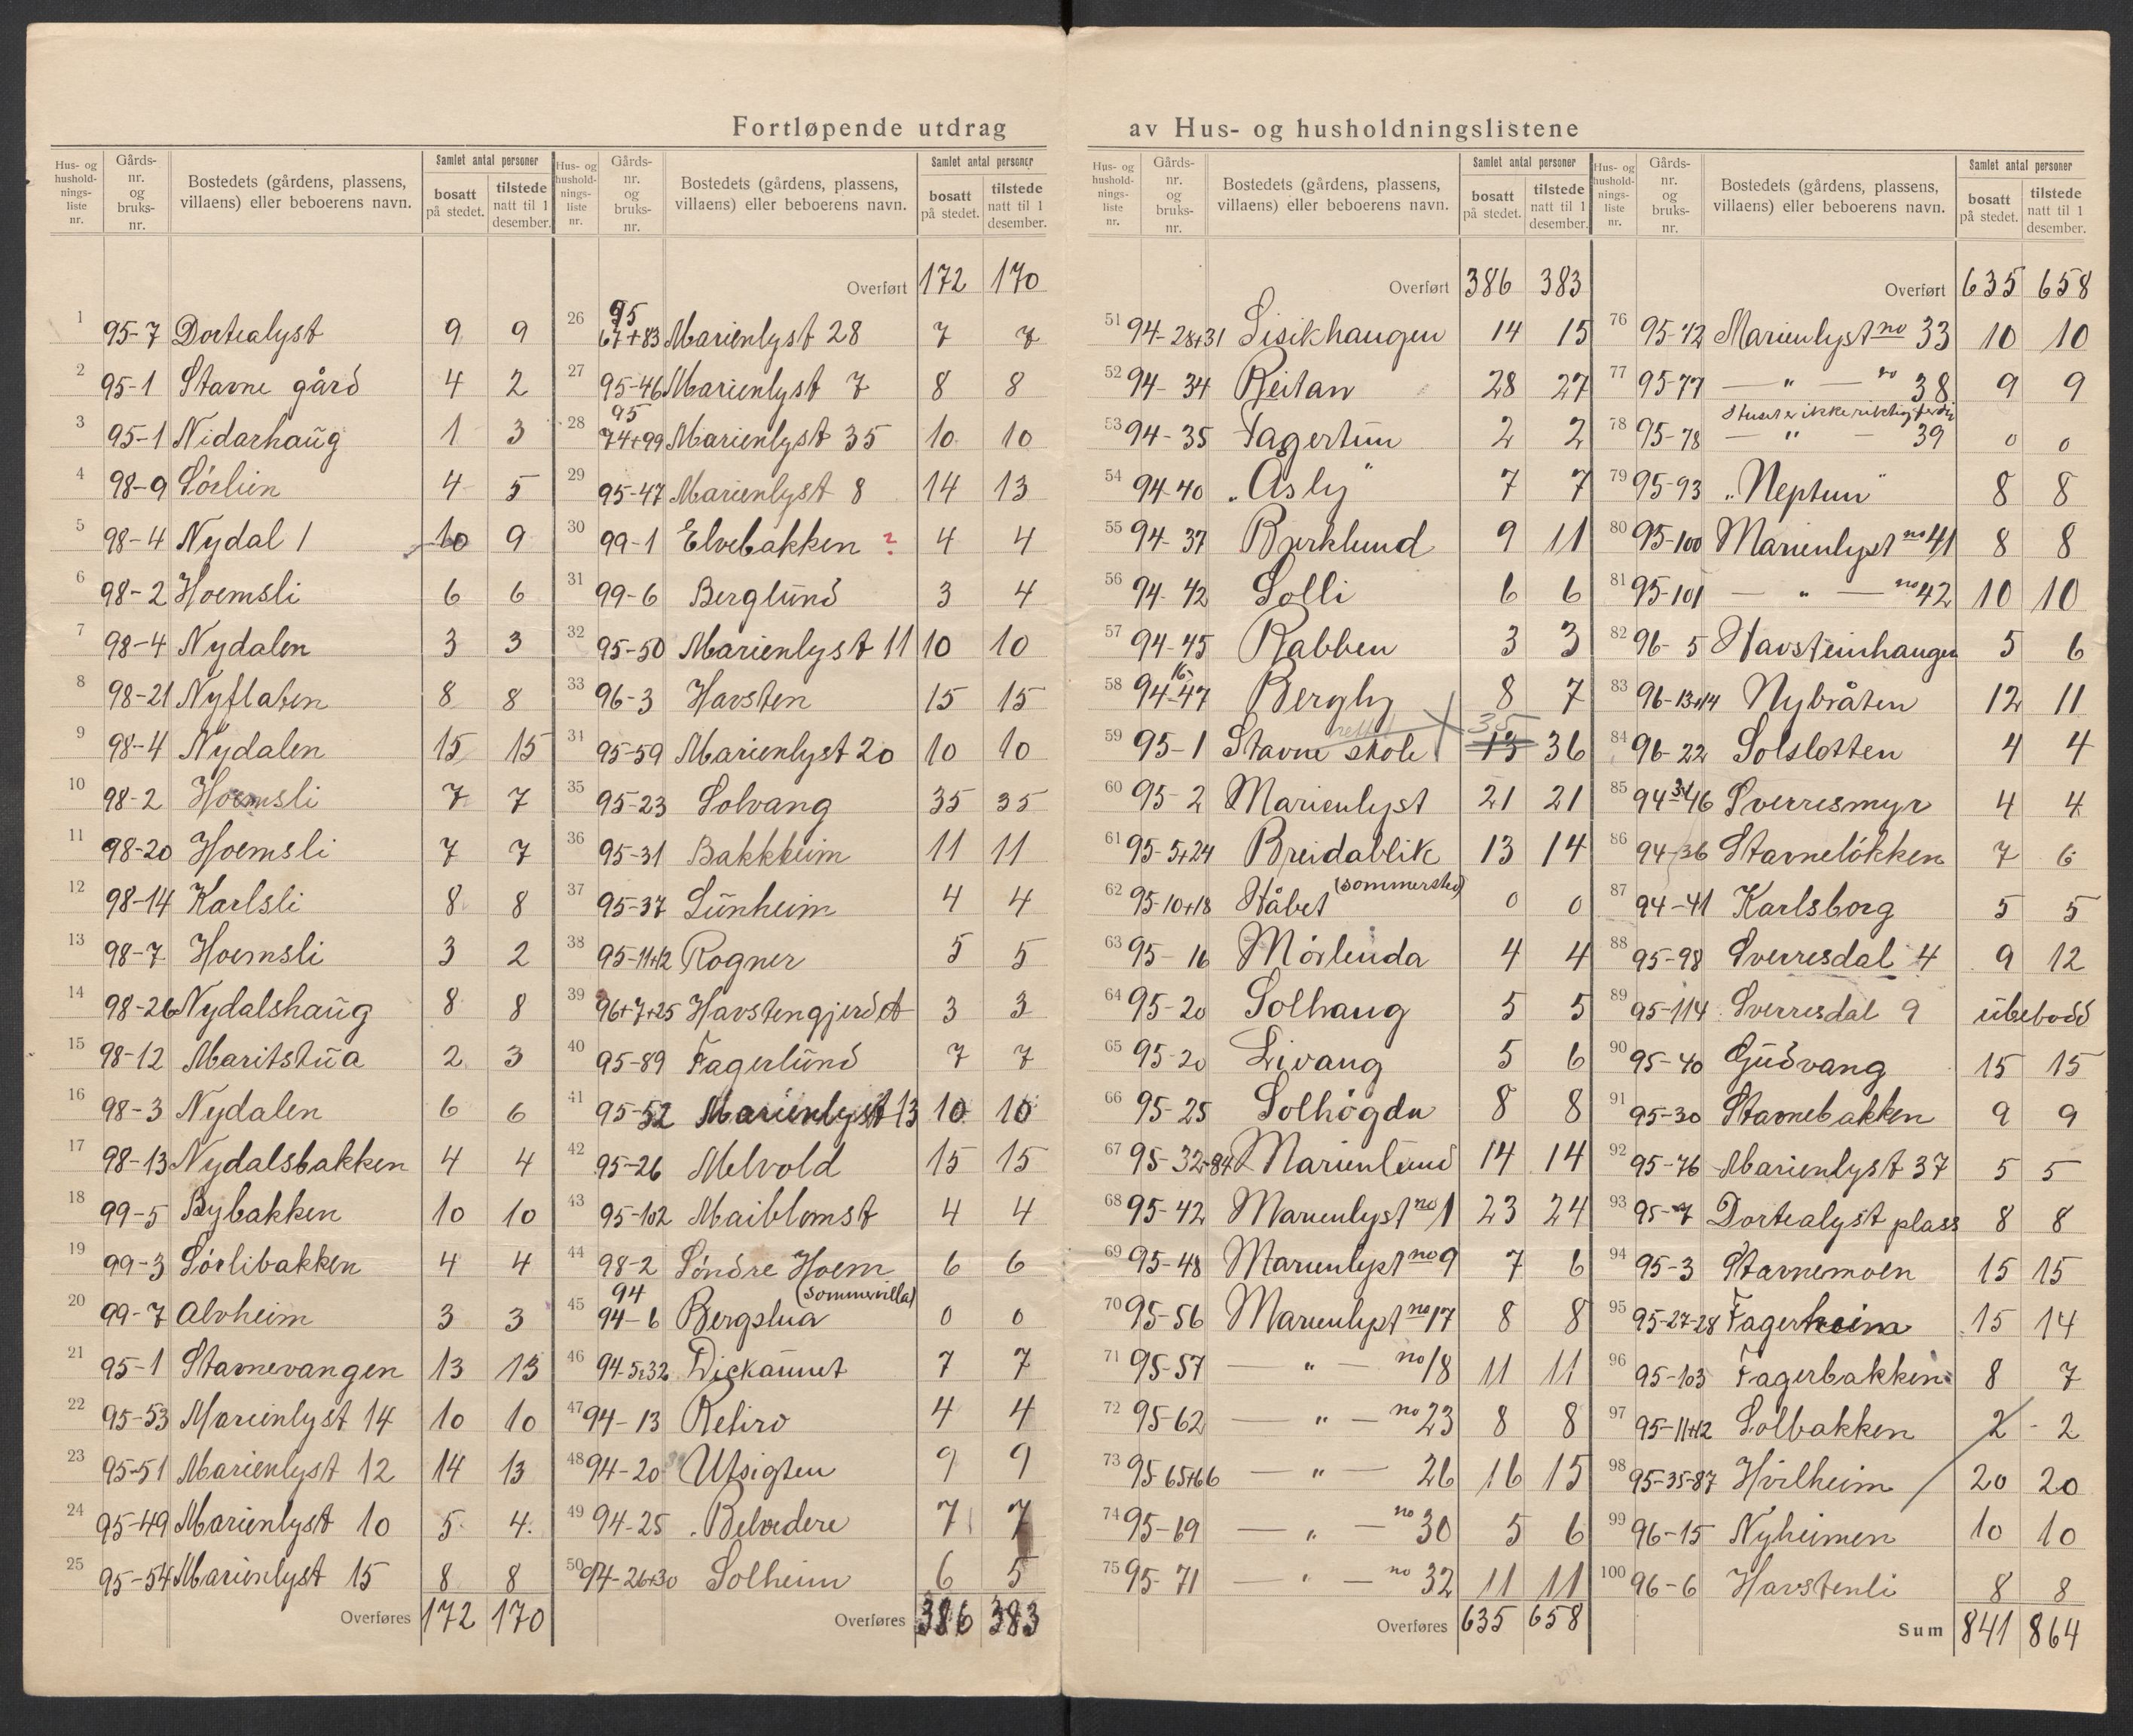 Fortløpende utdrag av Hus- og husholdningslistene
Hus- og husholdningsliste nr. | Gårds-nr. og bruks-nr. | Bostedets (gårdens, plassens, villaens) eller beboerens navn. | Samlet antal personer bosatt på stedet. | tilstede natt til 1 desember.
1 95-7 Dortealyst 9 9
2 95-1 Stavne gård 4 2
3 95-1 Nidarhaug 1 3
4 98-9 Sørlien 4 5
5 98-4 Nydal 1 10 9
6 98-2 Hoemsli 6 6
7 98-4 Nydalen 3 3
8 98-21 Nyflaten 8 8
9 98-4 Nydalen 15 15
10 98-2 Hoemsli 7 7
11 98-20 Hoemsli 7 7
12 98-14 Karlsli 8 8
13 98-7 Hoemsli 3 2
14 98-26 Nydalshaug 8 8
15 98-12 Maritstua 2 3
16 98-3 Nydalen 6 6
17 98-13 Nydalsbakken 4 4
18 99-5 Bybakken 10 10
19 99-3 Sørlibakken 4 4
20 99-7 Alvheim 3 3
21 95-1 Stavnevangen 13 13
22 95-53 Marienlyst 14 10 10
23 95-51 Marienlyst 12 14 13
24 95-49 Marienlyst 10 5 4
25 95-54 Marienlyst 15 8 8
Overføres 172 170
Hus- og husholdningsliste nr. | Gårds-nr. og bruks-nr. | Bostedets (gårdens, plassens, villaens) eller beboerens navn. | Samlet antal personer bosatt på stedet. | tilstede natt til 1 desember.
Overført 172 170
26 95 67+83 Marienlyst 28 7 7
27 95-46 Marienlyst 7 8 8
28 95 74+99 Marienlyst 35 10 10
29 95-47 Marienlyst 8 14 13
30 99-1 Elvebakken ? 4 4
31 99-6 Berglund 3 4
32 95-50 Marienlyst 11 10 10
33 96-3 Havsten 15 15
31 95-59 Marienlyst 20 10 10
35 95-23 Solvang 35 35
36 95-31 Bakkheim 11 11
37 95-37 Lunheim 4 4
38 95-11+12 Rogner 5 5
39 96+7+25 Havstengjerdet 3 3
40 95-89 Fagerlund 7 7
41 95-52 Marienlyst 13 10 10
42 95-26 Melvold 15 15
43 95-102 Maiblomst 4 4
44 98-2 Søndre Hoem 6 6
45 94 94-6 Bergstua (sommervilla) 0 0
46 94-5+32 Dickaunet 7 7
47 94-13 Retiro 4 4
48 94-20 Utsigten 9 9
49 94-25 Belvedere 7 7
50 94-26+30 Solheim 6 5
Overføres 386 383
Hus- og husholdningsliste nr. | Gårds-nr. og bruks-nr. | Bostedets (gårdens, plassens, villaens) eller beboerens navn. | Samlet antal personer bosatt på stedet. | tilstede natt til 1 desember.
Overført 386 383
51 94-28+31 Sisikhaugen 14 15
52 94-34 Reitan 28 27
53 94-35 Fagertun 2 2
54 94-40 "Åsly" 7 7
55 94-37 Bjerklund 9 11
56 94-42 Solli 6 6
57 94-45 Rabben 3 3
58 94-16-47 Bergly 8 7
59 95-1 Stavne skole 35 36
60 95-2 Marienlyst 21 21
61 95-5+24 Breidablik 13 14
62 95-10+18 Håbet (sommersted) 0 0
63 95-16 Mørlinda 4 4
64 95-20 Solhaug 5 5
65 95-20 Livang 5 6
66 95-25 Solhøgda 8 8
67 95-32+84 Marienlund 14 14
68 95-42 Marienlyst no 1 23 24
69 95-48 Marienlyst no 9 7 6
70 95-56 Marienlyst no 17 8 8
71 95-57 — " — no 18 11 11
72 95-62 — " — no 23 8 8
73 95-65+66 — " — 26 16 15
74 95-69 — " — no 30 5 6
75 95-71 — " — no 32 11 11
Overføres 635 658
Hus- og husholdningsliste nr. | Gårds-nr. og bruks-nr. | Bostedets (gårdens, plassens, villaens) eller beboerens navn. | Samlet antal personer bosatt på stedet. | tilstede natt til 1 desember.
Overført 635 658
76 95-72 Marienlyst no 33 10 10
77 95-77 — " — no 38 9 9
Huset er ikke riktig ferdig
78 95-78 — " — 39 0 0
79 95-93 "Neptun" 8 8
80 95-100 Marienlyst no 41 8 8
81 95-101 — " — no 42 10 10
82 96-5 Havsteinhaugen 5 6
83 96-13+14 Nybråten 12 11
84 96-22 Solslotten 4 4
85 94-34-46 Sverresmyr 4 4
86 94-36 Stavneløkken 7 6
87 94-41 Karlsborg 5 5
88 95-98 Sverresdal 4 9 12
89 95-114 Sverresdal 9 ubebodd
90 95-40 Gudvang 15 15
91 95-30 Stavnebakken 9 9
92 95-76 Marienlyst 37 5 5
93 95-7 Dortealyst plass 8 8
94 95-3 Stavnemoen 15 15
95 95-27-28 Fagerheim 15 14
96 95-103 Fagerbakken 8 7
97 95-11+12 Solbakken 2 - 2
98 95-35-87 Hvilheim 20 20
99 96-15 Nyheimen 10 10
100 96-6 Havstenli 8 8
Sum 841 864